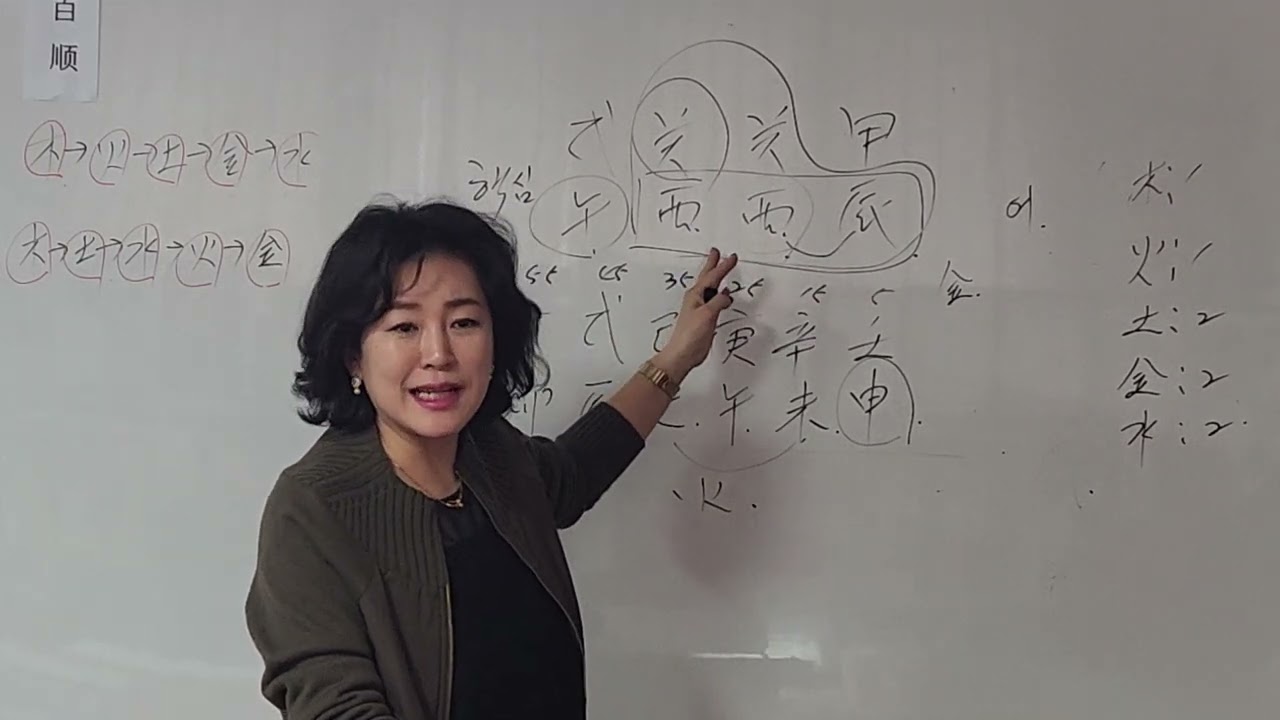 百
顺
木→火→土→金→水
木→土→水→火→金
戊 癸 癸 甲
핵심 午 酉 酉 辰
55 45 35 25 15 5 金.
戊 己 庚 辛 壬
卯 辰 巳 午 未 申
火.
木:1
火:1
土:2
金:2
水:2